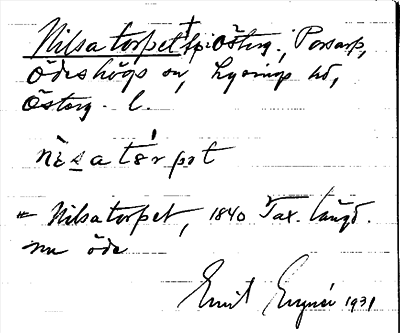 Nilsatorpet † fr. Österg., Porsarp,
Ödeshögs sn, Lysings hd,
Österg. l.
nìsatòrpət
= Nilsatorpet, 1840 Tax. längd.
nu öde
Emil 1931